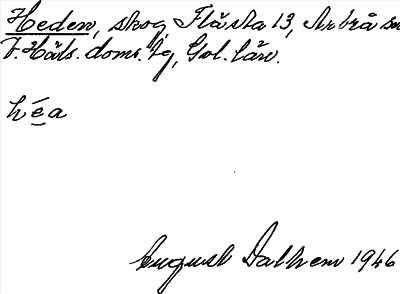 Heden, skog, Flästa 13, Arbrå sn
V. Häls. doms. tg, Gvl. län.
héa
August Dalhem 1946